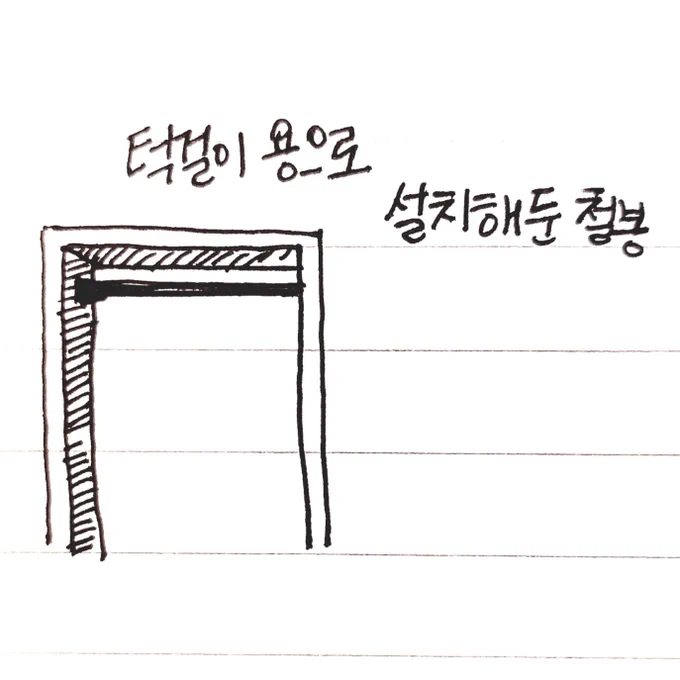 턱걸이 용으로
설치해둔 철봉